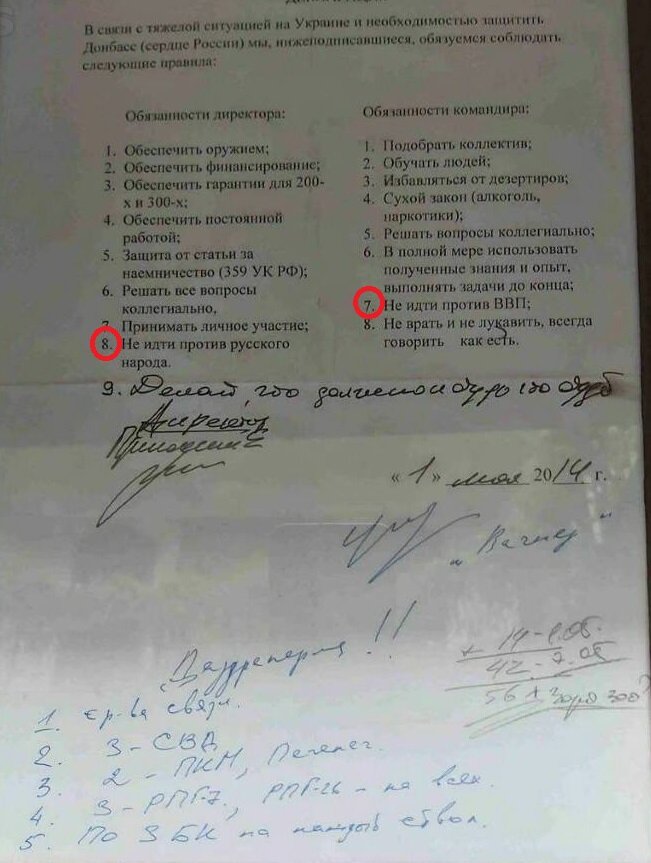 В связи с тяжелой ситуацией на Украине и необходимостью защитить
Донбасс (сердце России) мы, нижеподписавшиеся, обязуемся соблюдать
следующие правила:
Обязанности директора:
1. Обеспечить оружием;
2. Обеспечить финансирование;
3. Обеспечить гарантии для 200-
х и 300-х;
4. Обеспечить постоянной
работой;
5. Защита от статьи за
наемничество (359 УК РФ);
6. Решать все вопросы
коллегиально,
7. Принимать личное участие;
8. Не идти против русского
народа.
Обязанности командира:
1. Подобрать коллектив;
2. Обучать людей;
3. Избавляться от дезертиров;
4. Сухой закон (алкоголь,
наркотики);
5. Решать вопросы коллегиально;
6. В полной мере использовать
полученные знания и опыт,
выполнять задачи до конца;
7. Не идти против ВВП;
8. Не врать и не лукавить, всегда
говорить как есть.
9. Делай, что должно и будь что будет
Директор
Пригожин
«1» мая 2014 г.
„Вагнер"
!!
1. Ср-ва связи.
2. 3-СВД
3. 2-ПКМ, Печенег.
4. 3-РПГ-7, РПГ-26 - на всех.
5. По 3 БК на каждый ствол.
+ 14-
42-
56